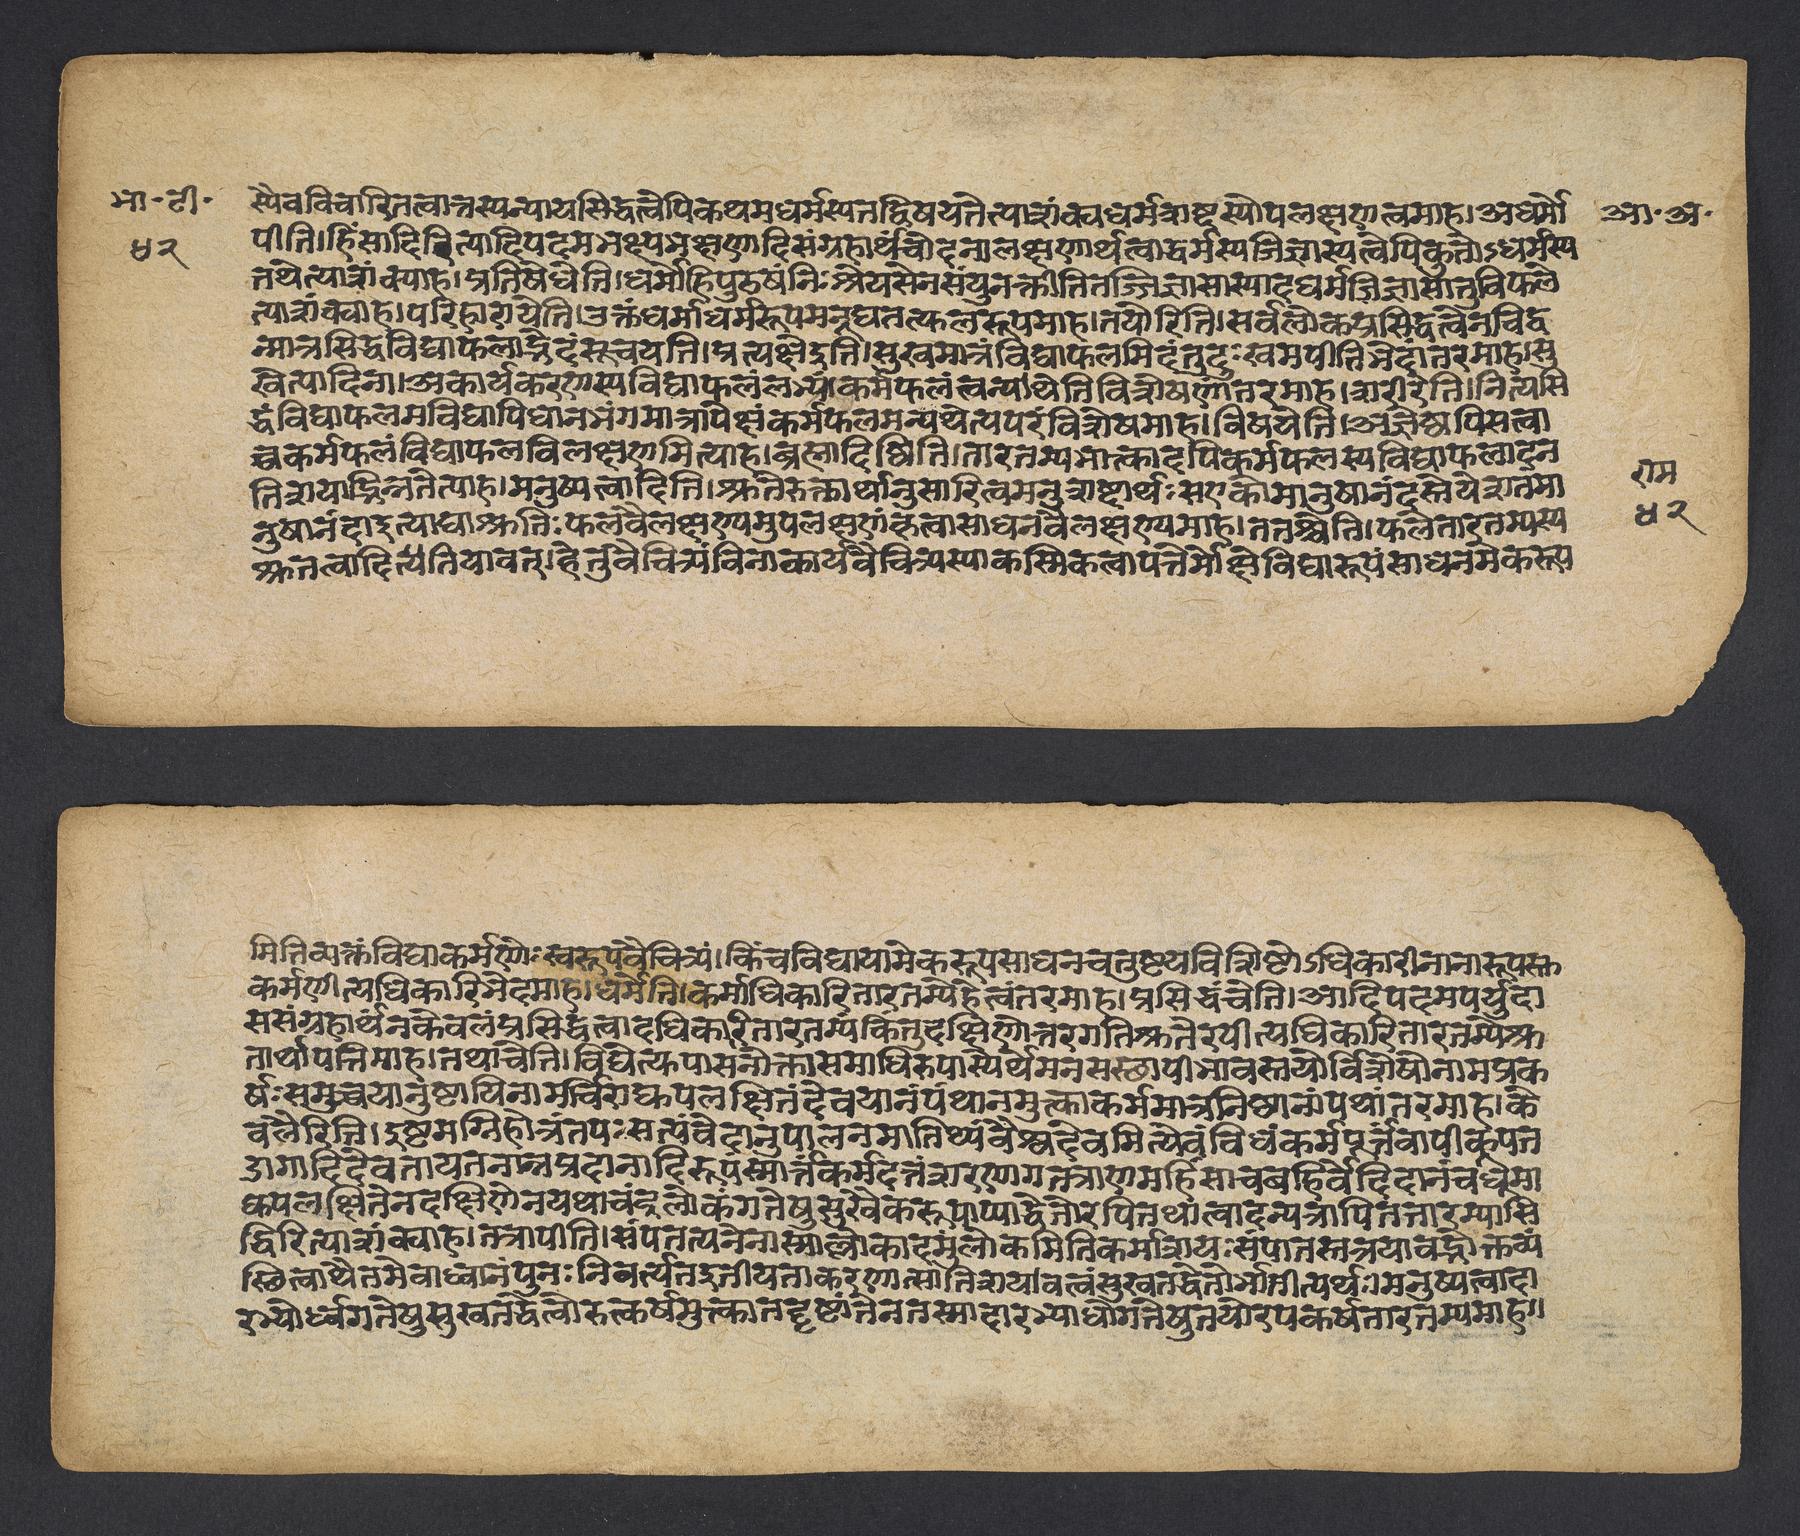 भा॰टी॰
४२
आ॰अ॰
राम
४२
स्यैवविचारितत्वात्तस्यन्यायसिद्धत्वेपिकथमधर्मस्यतद्विषयतेत्याशंक्यधर्मशब्दस्योपलक्षणत्वमाह।अधर्मो
पीति।हिंसादिरित्यादिपदमभक्ष्यभक्षणादिसंग्रहार्थंचोदनालक्षणार्थत्वाद्धर्मस्यजिज्ञास्यत्वेपिकुतोऽधर्मस्य
तथेत्याशंक्याह।प्रतिषेधेति।धर्मोहिपुरुषंनिःश्रेयसेनसंयुनक्तीतितज्जिज्ञासास्यादधर्मजिज्ञासातुविफले
त्याशंक्याह।परिहारायेति।उक्तंधर्माधर्मरूपमनूद्यतत्फलरूपमाह।तयोरिति।सर्वलोकप्रसिद्धत्वेनविद्व
न्मात्रसिद्धविद्याफलाद्भेदंसूचयति।प्रत्यक्षेइति।सुखमात्रंविद्याफलमिदंतुदुःखमपीतिभेदांतरमाह।सु
खेत्यादिना।अकार्यकरणस्यविद्याफलंलभ्यंकर्मफलंत्वन्यथेतिविशेषणांतरमाह।शरीरेति।नित्यसि
द्धंविद्याफलमविद्यापिधानभंगमात्रापेक्षंकर्मफलमन्यथेत्यपरंविशेषमाह।विषयेति।अज्ञेष्वपिसत्वा
च्चकर्मफलंविद्याफलविलक्षणमित्याह।ब्रह्मादिष्विति।तारतम्यभाक्त्वादपिकर्मफलस्यविद्याफलादन
तिशयाद्भिन्नतेत्याह।मनुष्यत्वादिति।श्रुतेरुक्तार्थानुसारित्वमनुशब्दार्थःसएकोमानुषानंदस्तेयेशतंमा
नुषानंदाइत्याद्याश्रुतिःफलवैलक्षण्यमुपलक्षणंकृत्वासाधनवैलक्षण्यमाह।ततश्चेति।फलेतारतम्यस्य
श्रुतत्वादित्यर्थेतियावत्।हेतुवैचित्र्यंविनाकार्यवैचित्र्यस्याकस्मिकत्वापत्तेर्मोक्षेविद्यारूपंसाधनमेकरूप
मितिव्यक्तंविद्याकर्मणोःस्वरूपवैचित्र्यं।किंचविद्यायामेकरूपसाधनचतुष्टयविशिष्टोऽधिकारीनानारूपस्तु
कर्मणीत्यधिकारिभेदमाह।धर्मेति।कर्माधिकारितारतम्येहेत्वंतरमाह।प्रसिद्धंचेति।आदिपदमपर्युदा
ससंग्रहार्थंनकेवलंप्रसिद्धत्वादधिकारितारतम्यंकिंतुदक्षिणोत्तरगतिश्रुतेरपीत्यधिकारितारतम्येश्रु
तार्थापत्तिमाह।तथाचेति।विद्येत्युपासनोक्तासमाधिरुपास्येर्थेमनसस्थापीभावस्तयोर्विशेषोनामप्रक
र्षःसमुच्चयानुष्ठायिनामर्चिराद्युपलक्षितंदेवयानंपंथानमुक्त्वाकर्ममात्रनिष्ठानांपथांतरमाह।के
वलैरिति।इष्टमग्निहोत्रंतपःसत्यंवेदानुपालनमातिथ्यंवैश्वदेवमित्येवंविधंकर्मपूर्तंवापीकूपत
डागादिदेवतायतनान्नप्रदानादिरूपंस्मार्त्तंकर्मदत्तंशरणागतत्राणमहिंसाचबहिर्वेदिदानंचधूमा
द्युपलक्षितेनदक्षिणेनयथाचंद्रलोकंगतेषुसुखैकरूप्याद्धेतोरपितथात्वादन्यत्रापितत्तारम्यासि
द्धिरित्याशंक्याह।तत्रापीति।संपतत्यनेनास्माल्लोकादमुंलोकमितिकर्माशयःसंपातस्तत्रयावद्भोक्तव्यं
स्थित्वाथैतमेवाध्वानंपुनःनिवर्त्यतइतीयताकरणात्सातिशयावत्वंसुखतद्धेतोर्भातीत्यर्थः।मनुष्यत्वादा
रभ्योर्ध्वगतेषुसुखतद्धेत्वोरुत्कर्षमुक्त्वातदृष्टांतेनतस्मादारभ्याधोगतेषुतयोरपकर्षतारतम्यमाह॥